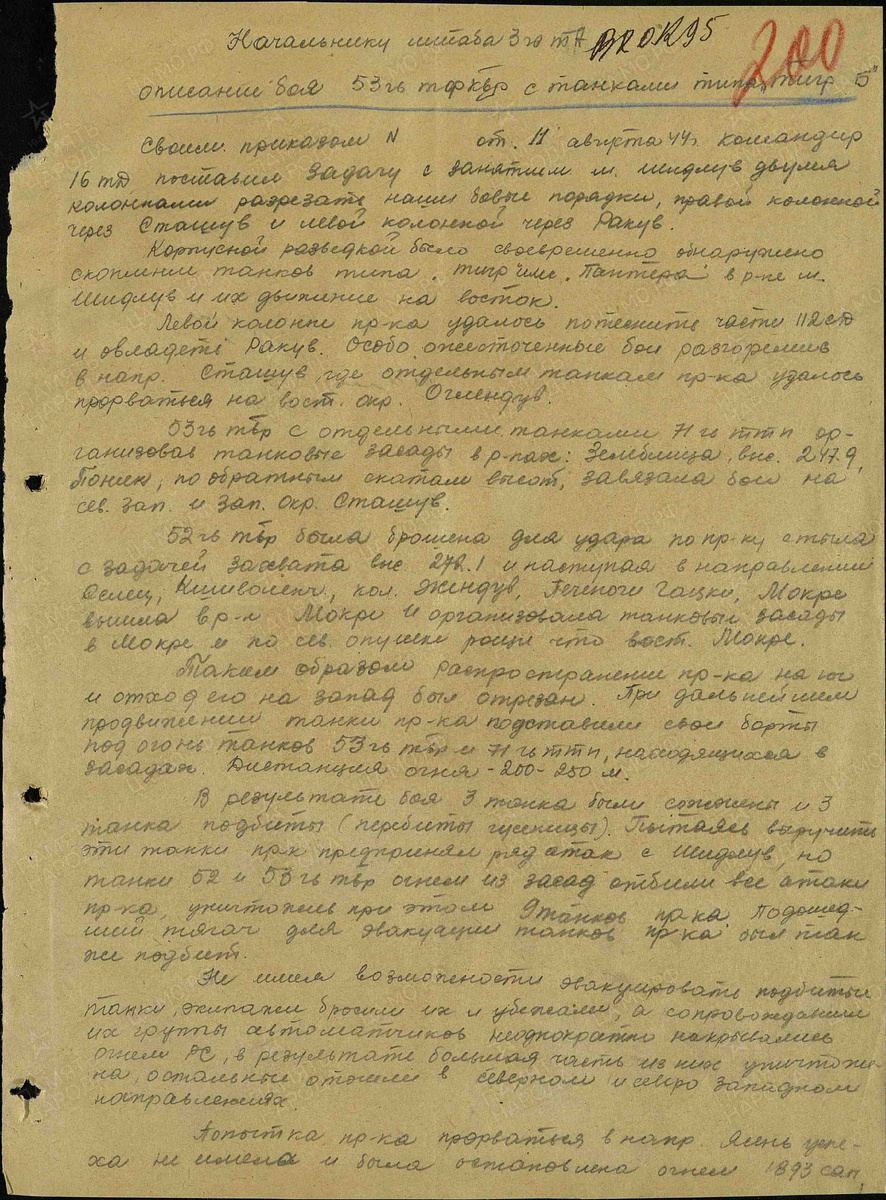 Начальнику штаба 3 гв ТА
200
описание боя 53 гв тфКбр с танками типа "тигр Б"
Своим приказом N от 11 августа 44 г. командир
16 тд поставил задачу с занятием м. Шидлув двумя
колоннами разрезать наши бовые порядки, правой колонной
через Сташув и левой колонной через Ракув.
Корпусной разведкой было своевременно обнаружено
скопление танков типа "тигр" или "Пантера" в р-не м.
Шидлув и их движение на восток.
Левой колонне пр-ка удалось потеснить части 112 сд
и овладеть Ракув. Особо ожесточенные бои разгорелись
в напр. Сташув, где отдельным танкам пр-ка удалось
прорваться на вост. окр. Оглендув.
53 гв тбр с отдельными танками 71 гв ттп ор-
ганизовав танковые засады в р-нах: Зембница, выс. 247.9,
Поник, по обратным скатам высот, завязала бои на
сев. зап. и зап. окр. Сташув.
52 гв тбр была брошена для удара по пр-ку с тыла
с задачей захвата выс. 278.1 и наступая в направлении
кол. Жендув, Гацки, Мокре
вышла в р-н Мокре и организовала танковые засады
в Мокре и по сев. опушке рощи что вост. Мокре.
Таким образом распространение пр-ка на юг
и отход его на запад был отрезан. При дальнейшем
продвижении танки пр-ка подставили свои борты
под огонь танков 53 гв тбр и 71 гв ттп, находящихся в
засадах. Дистанция огня - 200-250 м.
В результате боя 3 танка были сожжены и 3
танка подбиты (перебиты гусеницы). Пытаясь выручить
эти танки пр-к предпринял ряд атак с Шидлув, но
танки 52 и 53 гв тбр огнем из засад отбили все атаки
пр-ка, уничтожив при этом 9 танков пр-ка. Подошед-
ший тягач для эвакуации танков пр-ка был так
же подбит.
Не имея возможности эвакуировать подбитые
танки, экипажи бросили их и убежали, а сопровождавшие
их группы автоматчиков неоднократно накрывались
огнем РС, в результате большая часть из них уничтоже-
на, остальные отошли в северном и северо западном
направлениях.
Попытка пр-ка прорваться в напр. Ясень успе-
ха не имела и была остановлена огнем 1893 сап,